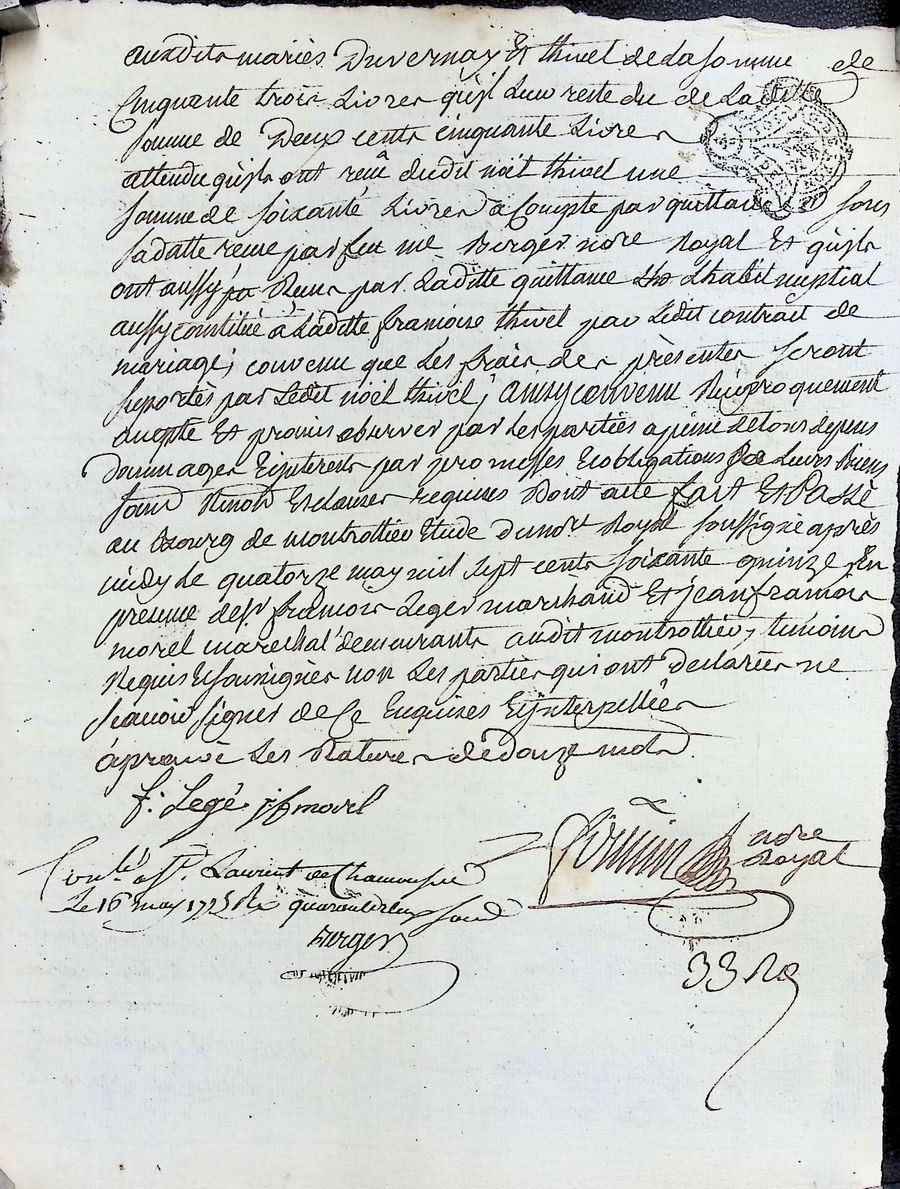 auxdits mariés Duvernay Et thivel de la somme de
Cinquante trois Livres qu'jl Leur reste du de La ditte
somme de Deux cents cinquante Livres
attendu qu'jls ont reçu dudit noël thivel une
somme de soixante Livres a Compte par quittance sous
sa datte reçue par feu me Berger nore Royal Et qu'jls
ont aussy reçu par Laditte quittance L'habit nuptial
aussy constitué a Laditte françoise thivel par Ledit contrat de
mariage; convenu que Les frais des présentes seront
suportés par Ledit noël thivel; ainsy convenu Réciproquement
accepté Et promis observer par Les parties a peine de tous depens
dommages Ejnterests par promesses Eobligations De Leurs Biens
soumis Renon Et clauses requises Dont acte fait Et Passé
au Bourg de montrottier Etude du nore Royal soussigné après
midy Le quatorze may mil sept cents soixante quinze En
présence de sr françois Leger marchand Et jean françois
morel marechal demeurants audit montrottier, temoins
Requis Et soussignés non Les parties qui ont declarées ne
scavoir signer de Ce Enquises Ejnterpellées
aprouvé Les Ratures de douze mots
f: Legé jf morel
nore
Royal
Conlé a St. Laurent de Chamousset
Le 16 may 1775 Re quarante deux sous
Berger
33 Rs